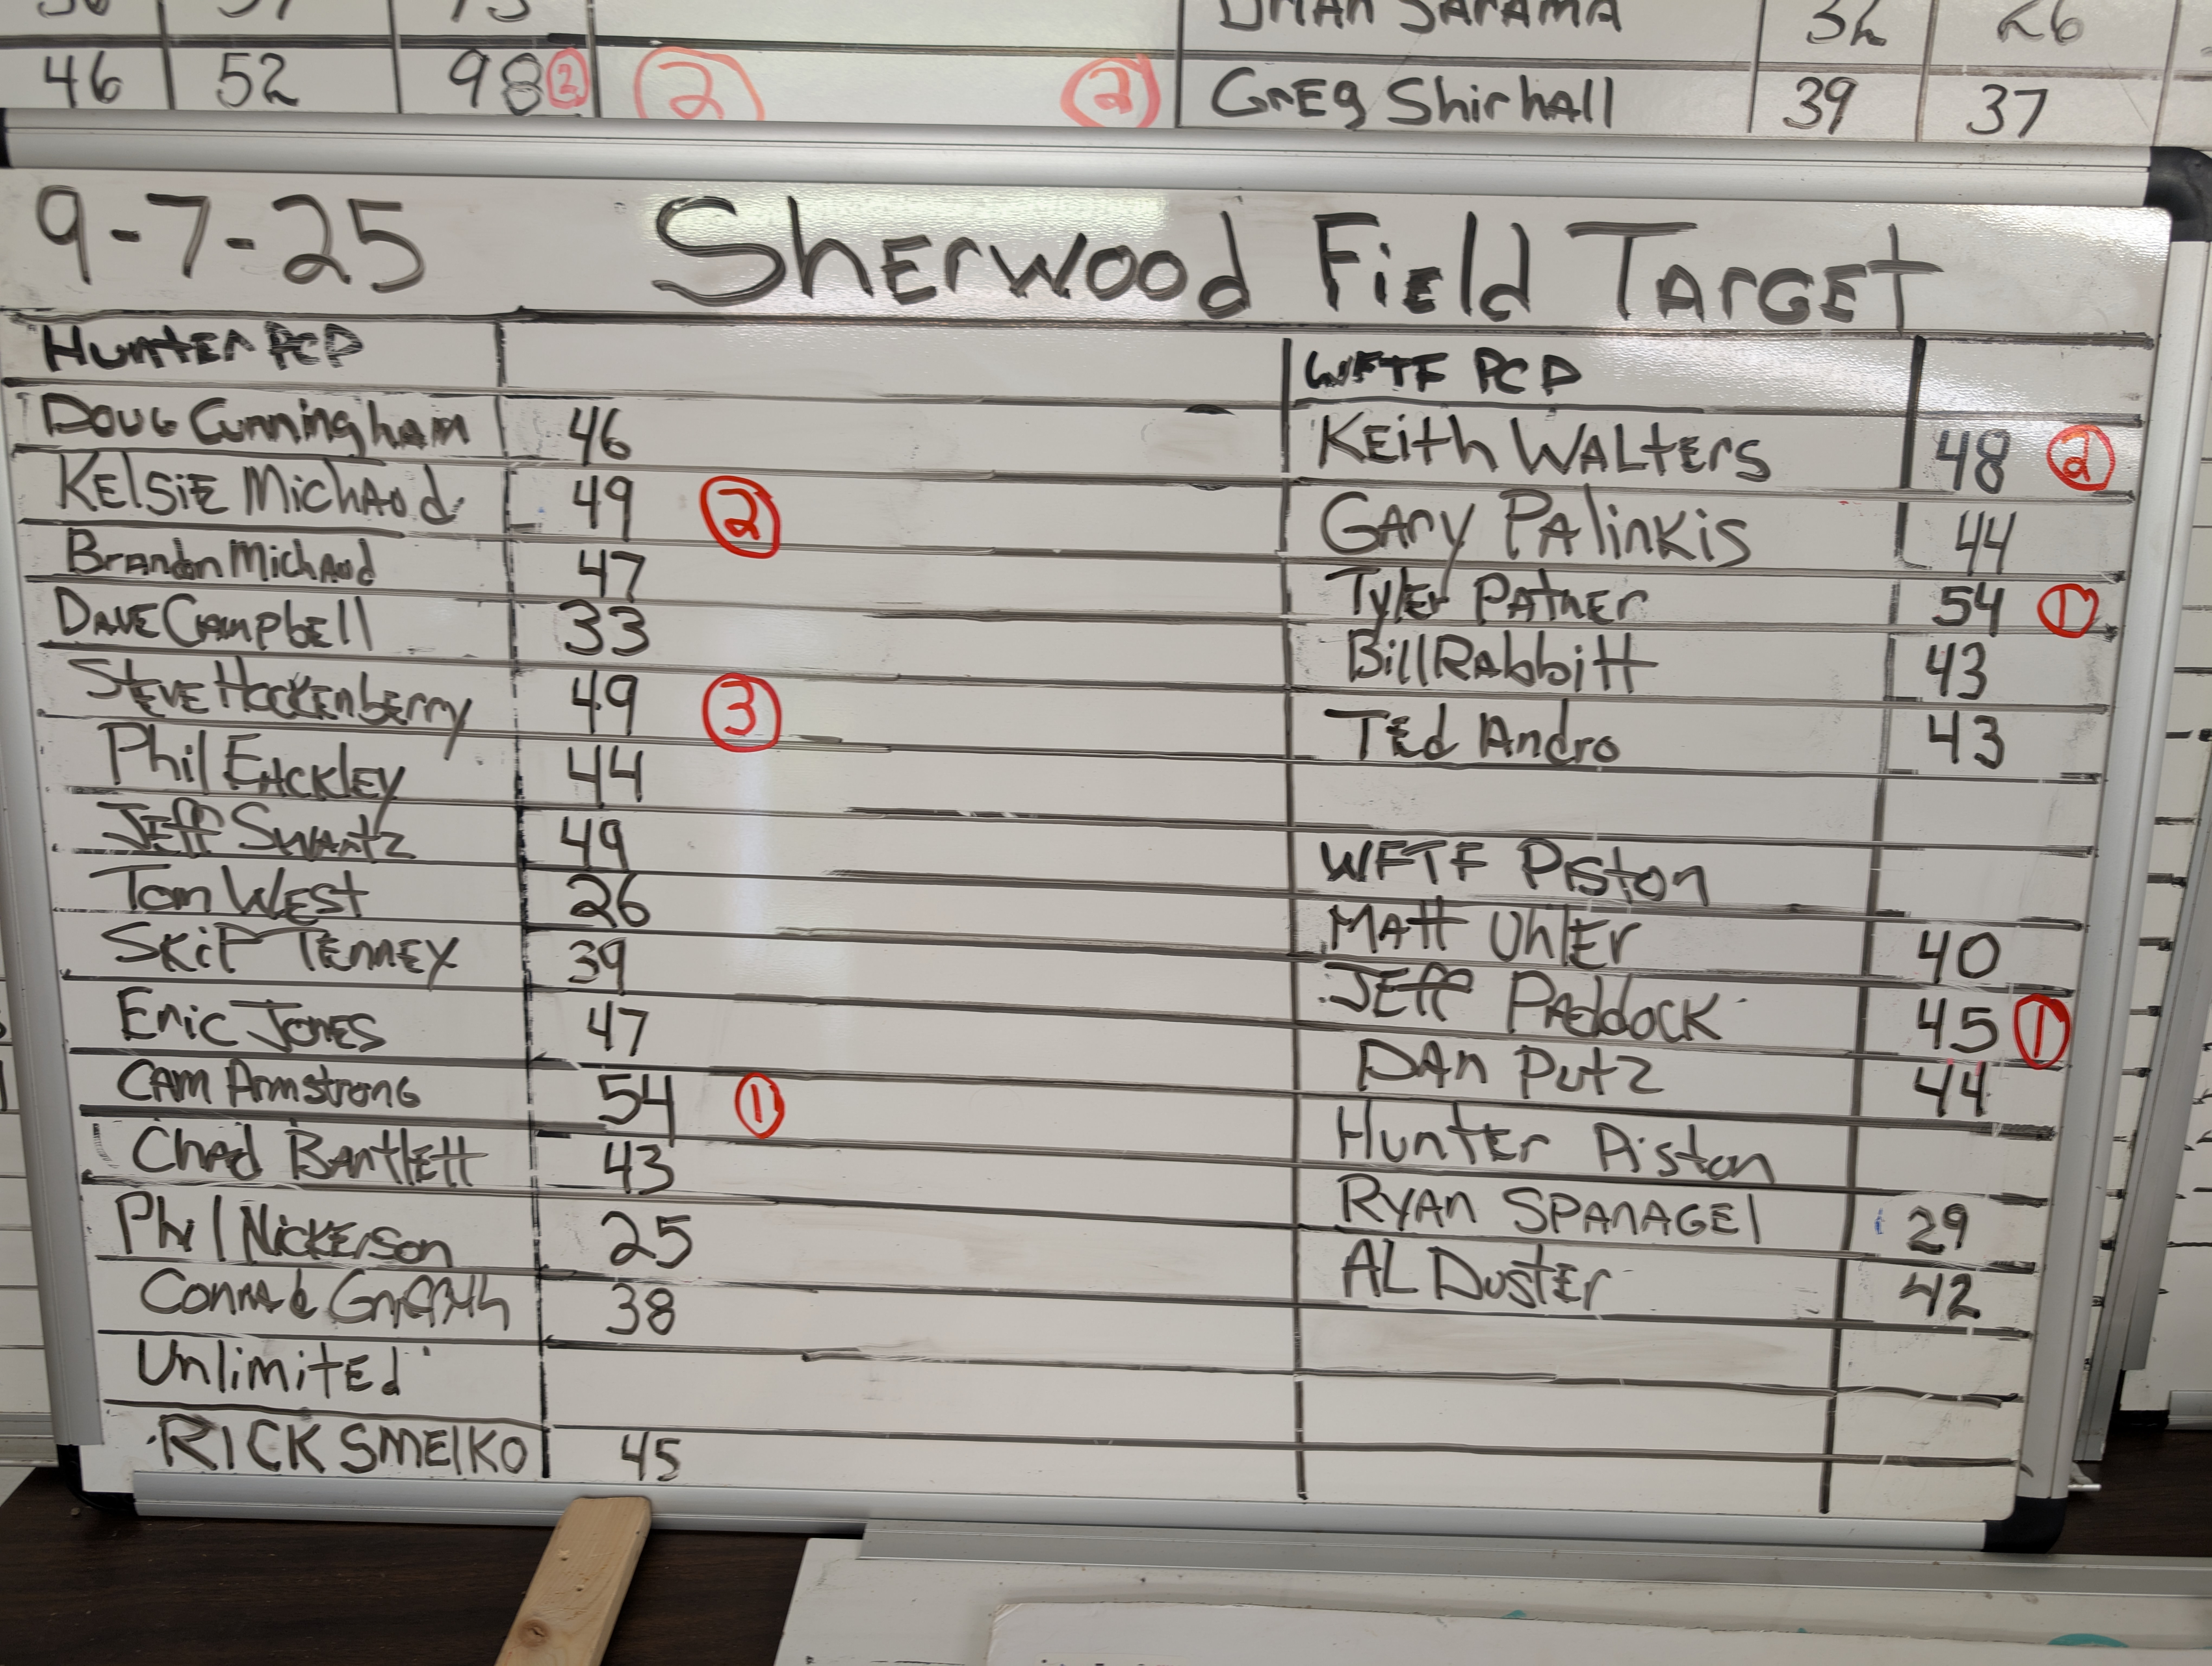 46 52 98 2 2 2 Greg Shirhall 39 37
9-7-25 Sherwood Field Target
Hunter PCP
Doug Cunningham 46
Kelsie Michaud 49 2
Brandon Michaud 47
Dave Campbell 33
Steve Hockenberry 49 3
Phil Eackley 44
Jeff Swartz 49
Tom West 26
Skip Tenney 39
Eric Jones 47
Cam Armstrong 54 1
Chad Bartlett 43
Phil Nickerson 25
Conrad Griffith 38
Unlimited
Rick Smeiko 45
WFTF PCP
Keith Walters 48 2
Gary Palinkis 44
Tyler Patner 54 1
Bill Rabbitt 43
Ted Andro 43
WFTF Piston
Matt Uhler 40
Jeff Paddock 45 1
Dan Putz 44
Hunter Piston
Ryan Spanagel 29
Al Duster 42